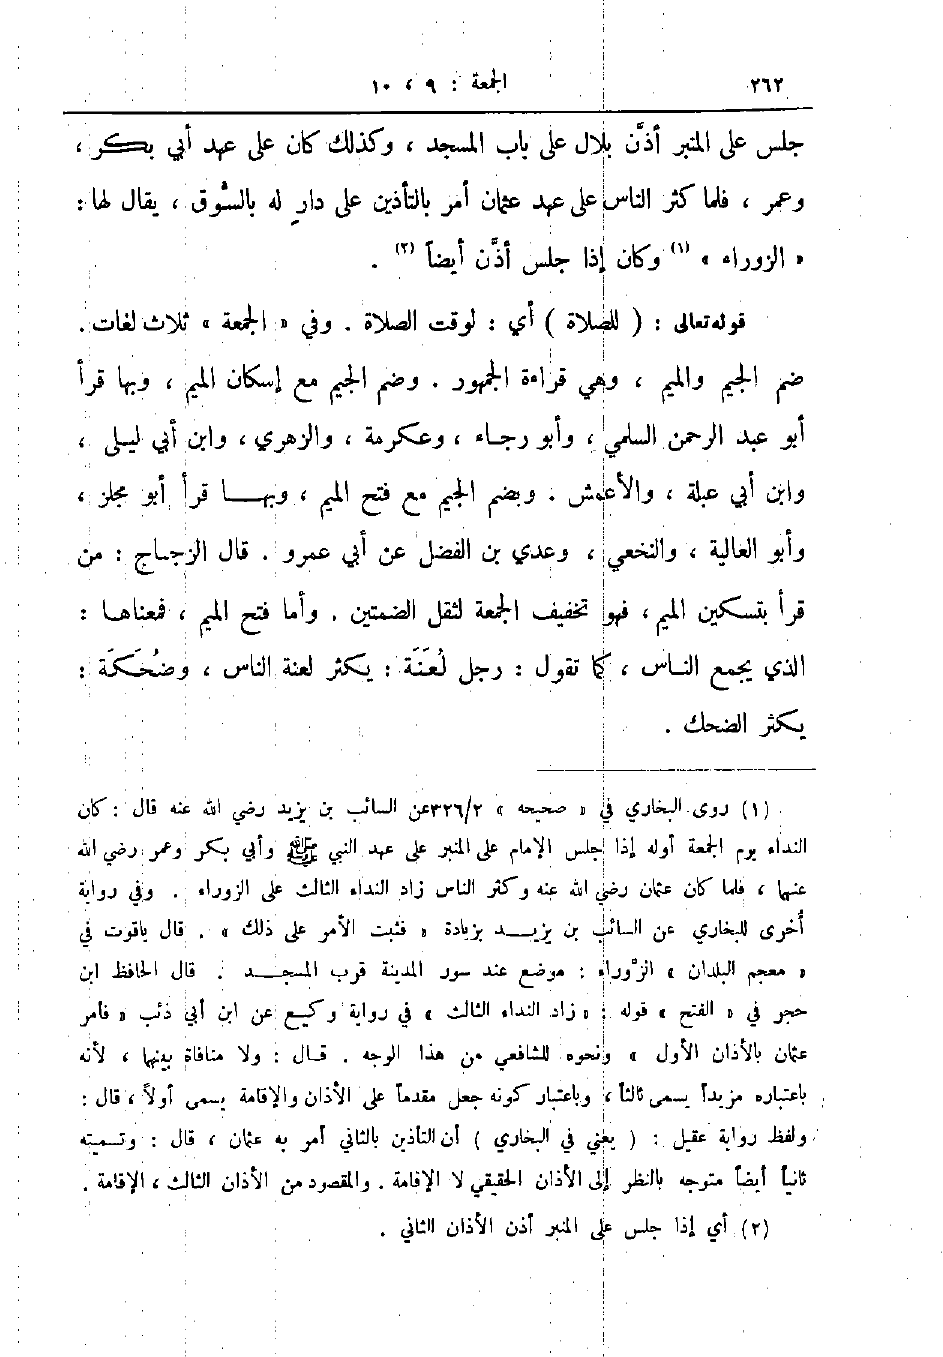 ٢٦٢ الجمعة : ٩ ، ١٠
جلس على المنبر أذَّن بلال على باب المسجد ، وكذلك كان على عهد أبي بكر ،
وعمر ، فلما كثر الناس على عهد عثمان أمر بالتأذين على دارٍ له بالسُّوق ، يقال لها :
« الزوراء » (١) وكان إذا جلس أذَّن أيضاً (٢) .
قوله تعالى : ( للصلاة ) أي : لوقت الصلاة . وفي « الجمعة » ثلاث لغات .
ضم الجيم والميم ، وهي قراءة الجمهور . وضم الجيم مع إسكان الميم ، وبها قرأ
أبو عبد الرحمن السلمي ، وأبو رجاء ، وعكرمة ، والزهري ، وابن أبي ليلى ،
وابن أبي عبلة ، والأعمش . وبضم الجيم مع فتح الميم ، وبهـا قرأ أبو مجلز ،
وأبو العالية ، والنخعي ، وعدي بن الفضل عن أبي عمرو . قال الزجاج : من
قرأ بتسكين الميم ، فهو تخفيف الجمعة لثقل الضمتين . وأما فتح الميم ، فمعناها :
الذي يجمع الناس ، كما تقول : رجل لُعَنَة : يكثر لعنة الناس ، وضُحَكَة :
يكثر الضحك .
(١) روى البخاري في « صحيحه » ٣٢٦/٢عن السائب بن يزيد رضي الله عنه قال : كان
النداء يوم الجمعة أوله إذا جلس الإمام على المنبر على عهد النبي ﷺ وأبي بكر وعمر رضي الله
عنهما ، فلما كان عثمان رضي الله عنه وكثر الناس زاد النداء الثالث على الزوراء . وفي رواية
أخرى للبخاري عن السائب بن يزيـد بزيادة « فثبت الأمر على ذلك » . قال ياقوت في
« معجم البلدان » الزَّوراء : موضع عند سور المدينة قرب المسجـد . قال الحافظ ابن
حجر في « الفتح » قوله : « زاد النداء الثالث » في رواية وكيع عن ابن أبي ذئب « فأمر
عثمان بالأذان الأول » ونحوه للشافعي من هذا الوجه . قـال : ولا منافاة بينهما ، لأنه
باعتباره مزيداً يسمى ثالثاً ، وباعتبار كونه جعل مقدماً على الأذان والإقامة يسمى أولاً ، قال :
ولفظ رواية عقيل : ( يعني في البخاري ) أن التأذين بالثاني أمر به عثمان ، قال : وتسميته
ثانياً أيضاً متوجه بالنظر إلى الأذان الحقيقي لا الإقامة . والمقصود من الأذان الثالث ، الإقامة .
(٢) أي إذا جلس على المنبر أذن الأذان الثاني .